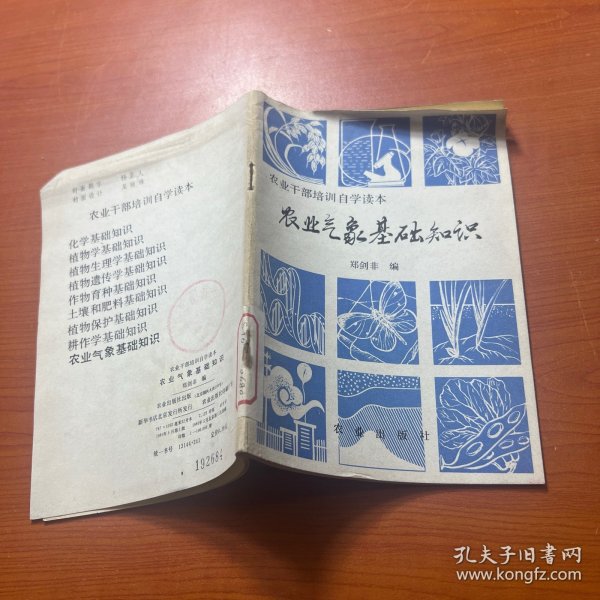 农业干部培训自学读本
农业气象基础知识
郑剑非 编
农业出版社
农业干部培训自学读本
化学基础知识
植物学基础知识
植物生理学基础知识
植物遗传学基础知识
作物育种基础知识
土壤和肥料基础知识
植物保护基础知识
耕作学基础知识
农业气象基础知识
农业干部培训自学读本
农业气象基础知识
郑剑非 编
农业出版社出版
新华书店北京发行所发行
统一书号
192684
孔夫子旧书网
www.kongfz.com